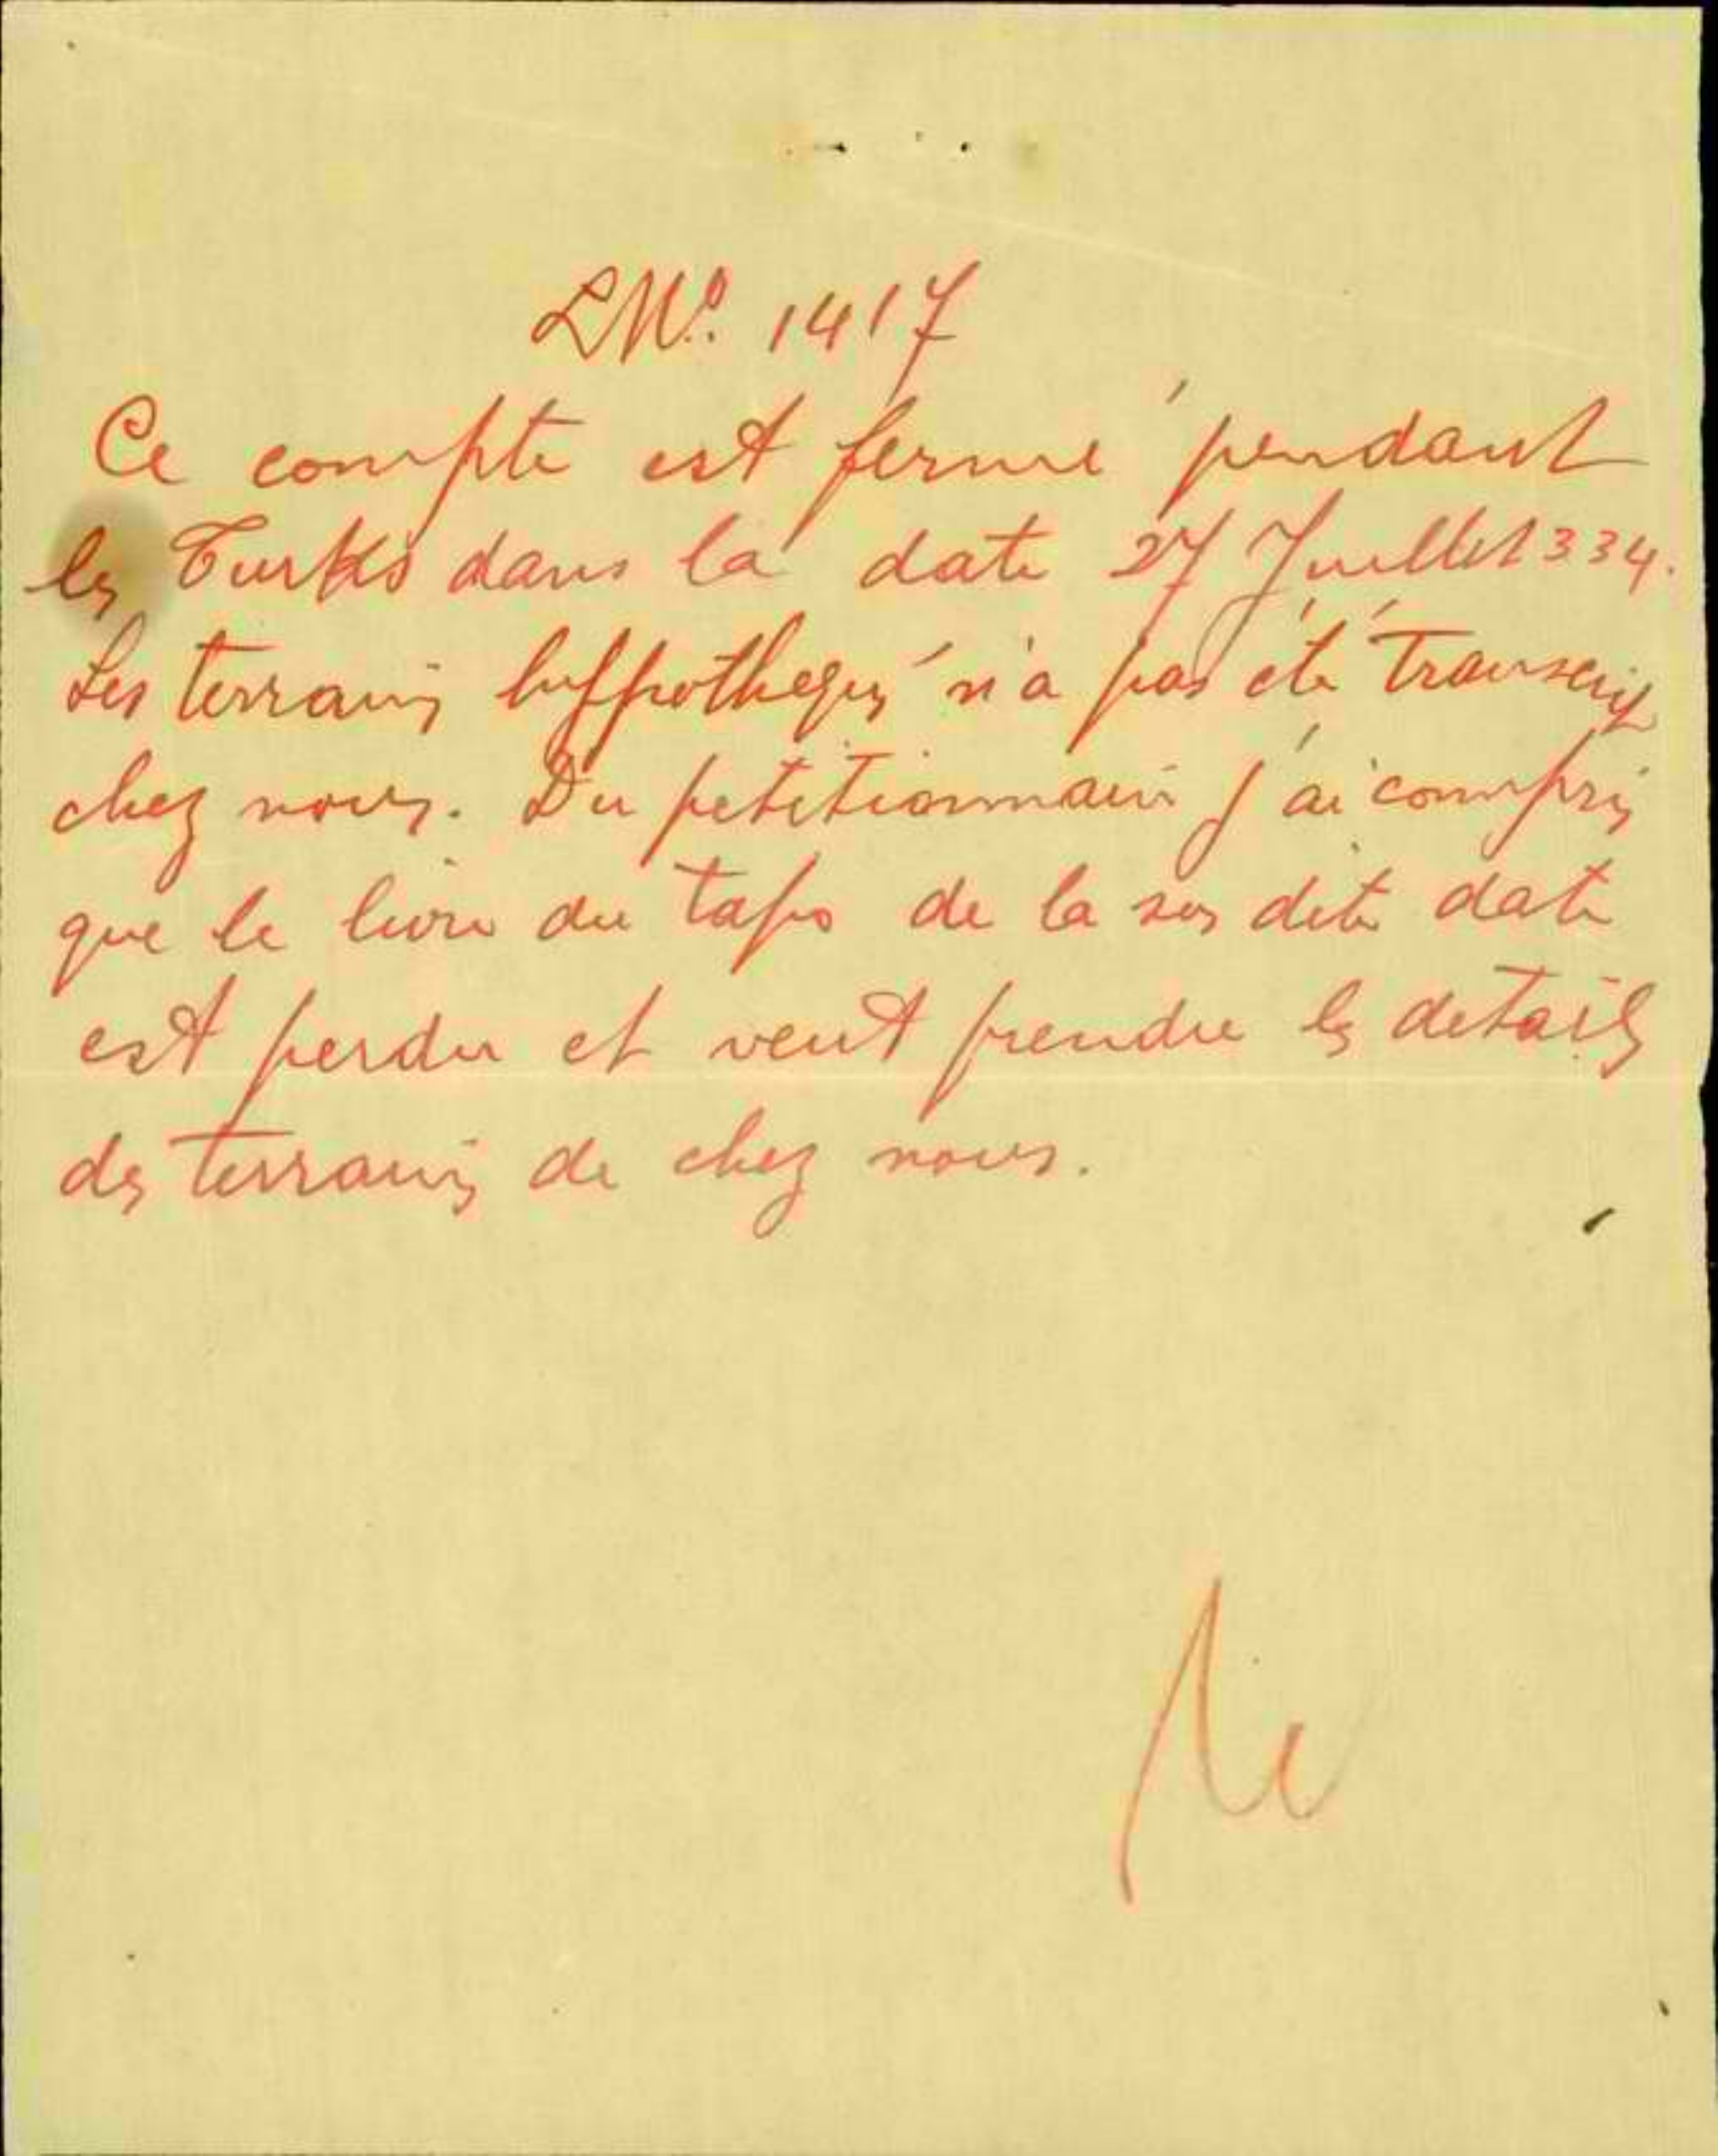 LNº. 1417
Ce compte est fermé pendant
les Turks dans la date 27 Juillet 334.
Les terrains hyppothequés n'a pas été transcrit
chez nous. Du petitionnaire j'ai compris
que le livre du tapo de la sus dite date
est perdu et veut prendre les details
des terrains de chez nous.